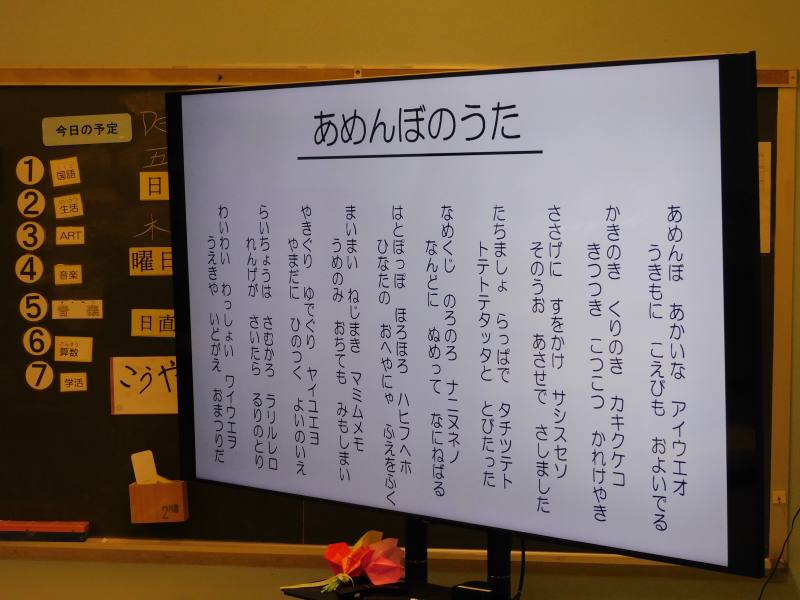 あめんぼのうた
あめんぼ あかいな アイウエオ
うきもに こえびも およいでる
かきのき くりのき カキクケコ
きつつき こつこつ かれけやき
ささげに すをかけ サシスセソ
そのうお あさせで さしました
たちましょ らっぱで タチツテト
トテトテタッタと とびたった
なめくじ のろのろ ナニヌネノ
なんどに ぬめって なにねばる
はとぽっぽ ほろほろ ハヒフヘホ
ひなたの おへやにゃ ふえをふく
まいまい ねじまき マミムメモ
うめのみ おちても みもしまい
やきぐり ゆでぐり ヤイユエヨ
やまだに ひのつく よいのいえ
らいちょうは さむかろ ラリルレロ
れんげが さいたら るりのとり
わいわい わっしょい ワイウエヲ
うえきや いどがえ おまつりだ
今日の予定
1 国語
2 生活
3 ART
4 音楽
5
6 算数
7 学活
日
木
曜日
日直
こうや